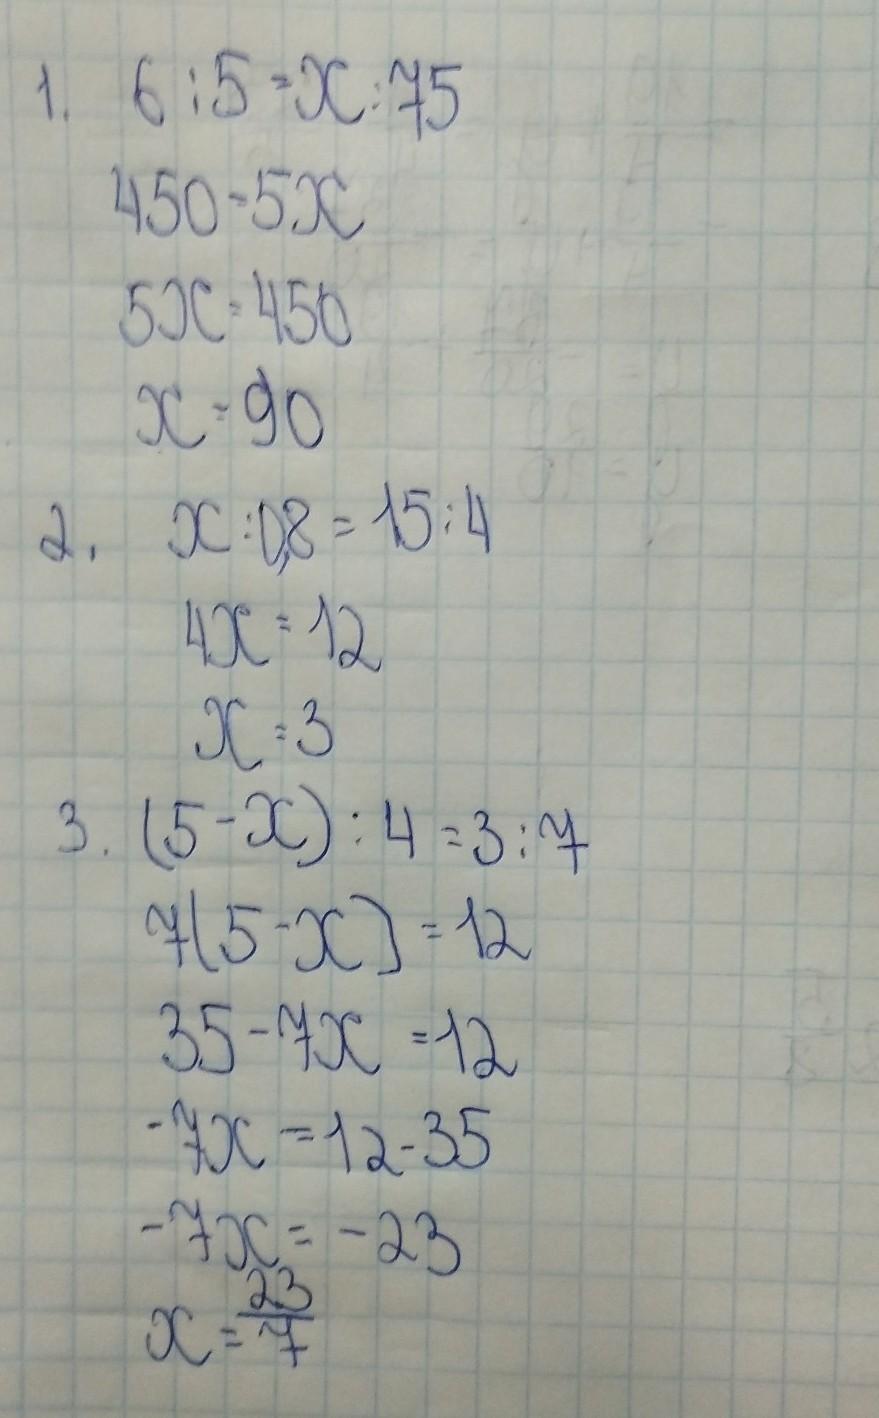 1. 6:5=x:75
450=5x
5x=450
x=90
2. x:0,8=15:4
4x=12
x=3
3. (5-x):4=3:7
7(5-x)=12
35-7x=12
-7x=12-35
-7x=-23
x=23/7